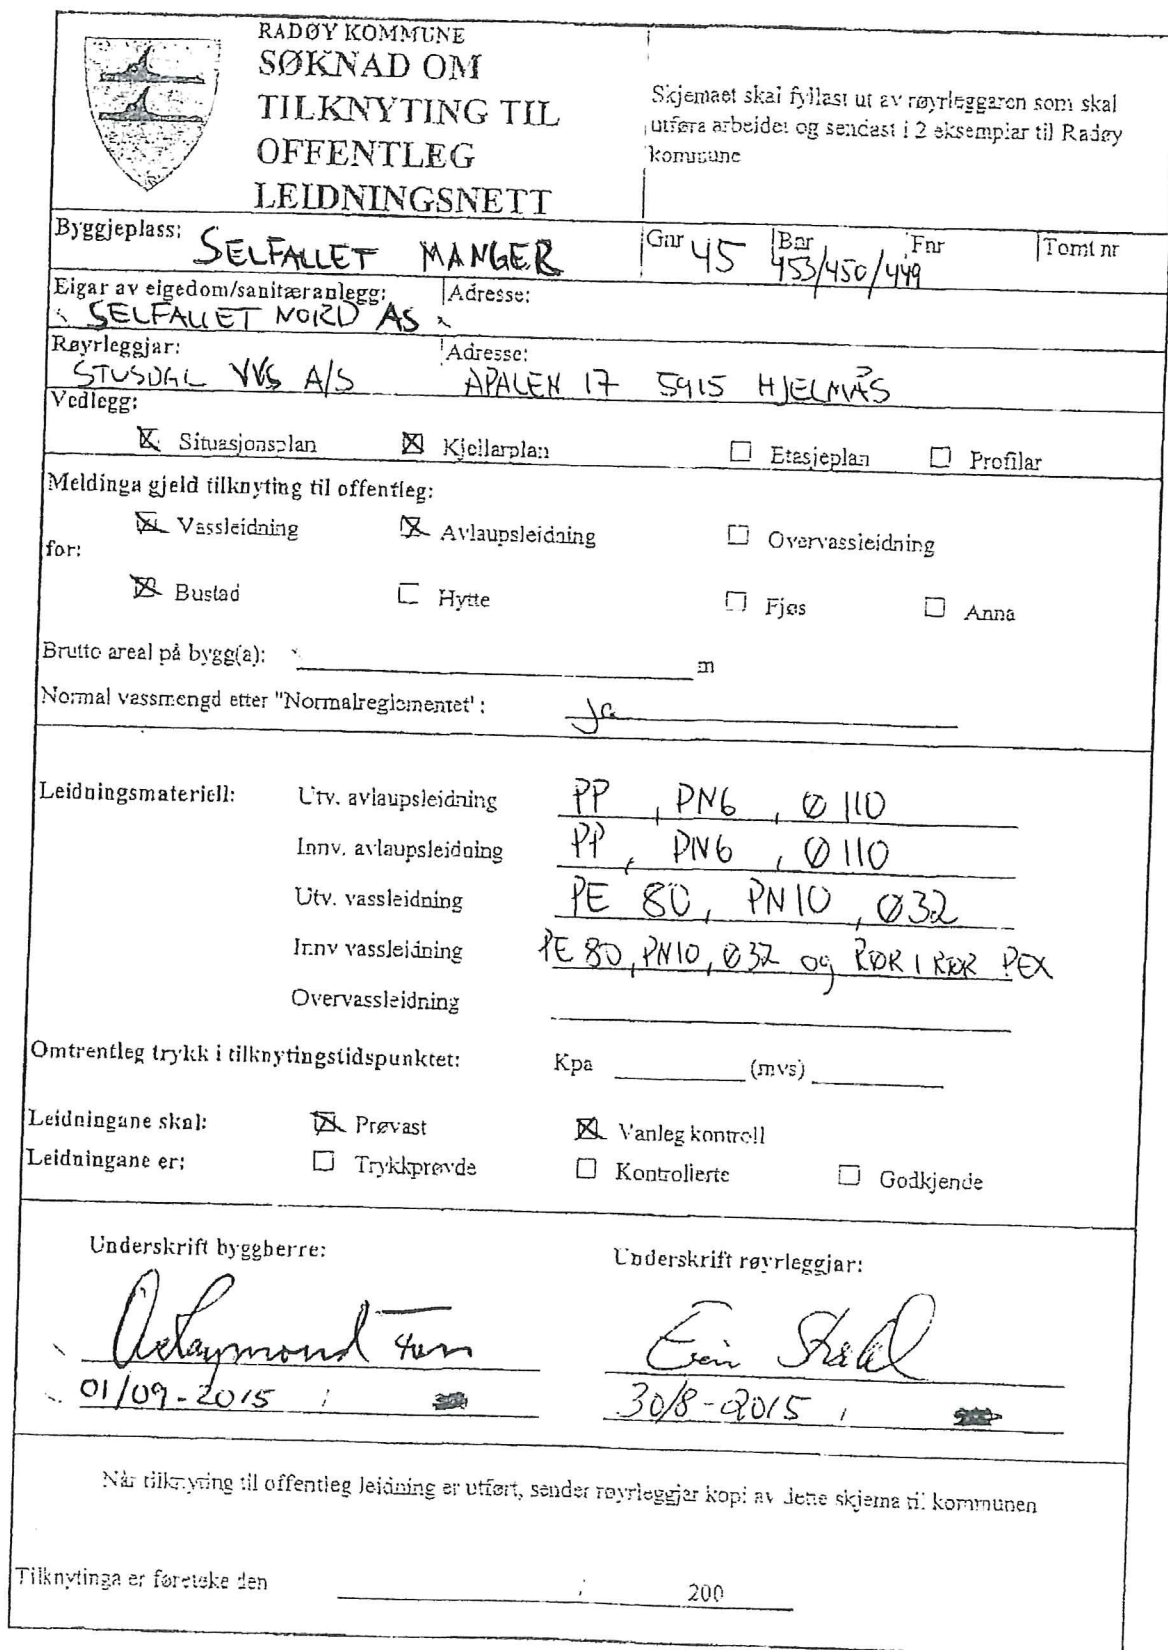 RADØY KOMMUNE
SØKNAD OM
TILKNYTING TIL
OFFENTLEG
LEIDNINGSNETT
Skjemaet skal fyllast ut av røyrleggaren som skal
utføra arbeidet og sendast i 2 eksemplar til Radøy
kommune
Byggjeplass: SELFALLET MANGER Gnr 45 Bnr 453/450/449 Fnr Tomt nr
Eigar av eigedom/sanitæranlegg: Adresse:
SELFALLET NORD AS
Røyrleggjar: Adresse:
VVS A/S APALEN 17 5915 HJELMÅS
Vedlegg:
Situasjonsplan Kjellarplan Etasjeplan Profilar
Meldinga gjeld tilknyting til offentleg:
Vassleidning Avlaupsleidning Overvassleidning
for:
Bustad Hytte Fjøs Anna
Brutto areal på bygg(a): m
Normal vassmengd etter "Normalreglementet": Ja
Leidningsmateriell: Utv. avlaupsleidning PP, PN6, Ø 110
Innv. avlaupsleidning PP, PN6, Ø 110
Utv. vassleidning PE 80, PN10, Ø32
Innv vassleidning PE 80, PN10, Ø32 og RØR I RØR PEX
Overvassleidning
Omtrentleg trykk i tilknytingstidspunktet: Kpa (mvs)
Leidningane skal: Prøvast Vanleg kontroll
Leidningane er: Trykkprøvde Kontrollerte Godkjende
Underskrift byggherre: Underskrift røyrleggjar:
01/09-2015 30/8-2015
Når tilknyting til offentleg leidning er utført, sender røyrleggjar kopi av dette skjema til kommunen
Tilknytinga er føreteke den / 200